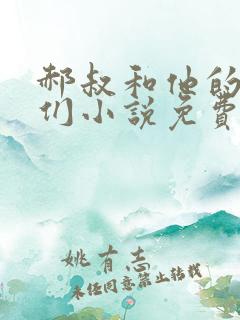 郝叔和他的
们小说免费
姚有志
未任同意禁止转载